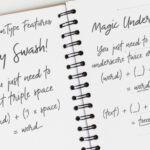 nType Features
y Swash!
u just need to
t triple space
) + (3 x space)
= word
Magic Unders
You just need to
underscore twice or
(word) + (_)
= word
(text) + (_) +